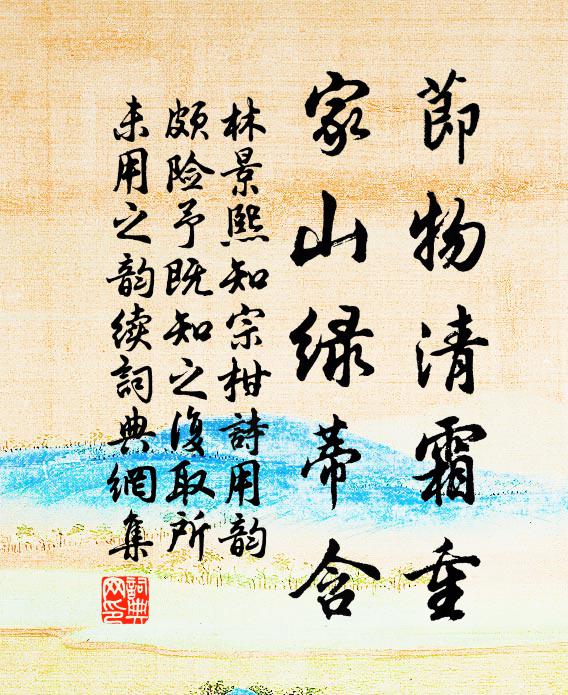 節物清霜重
家山绿蒂含
林景熙知宗柑詩用韵
颇险予既知之復取所
未用之韵续詞典網集
詞典網印